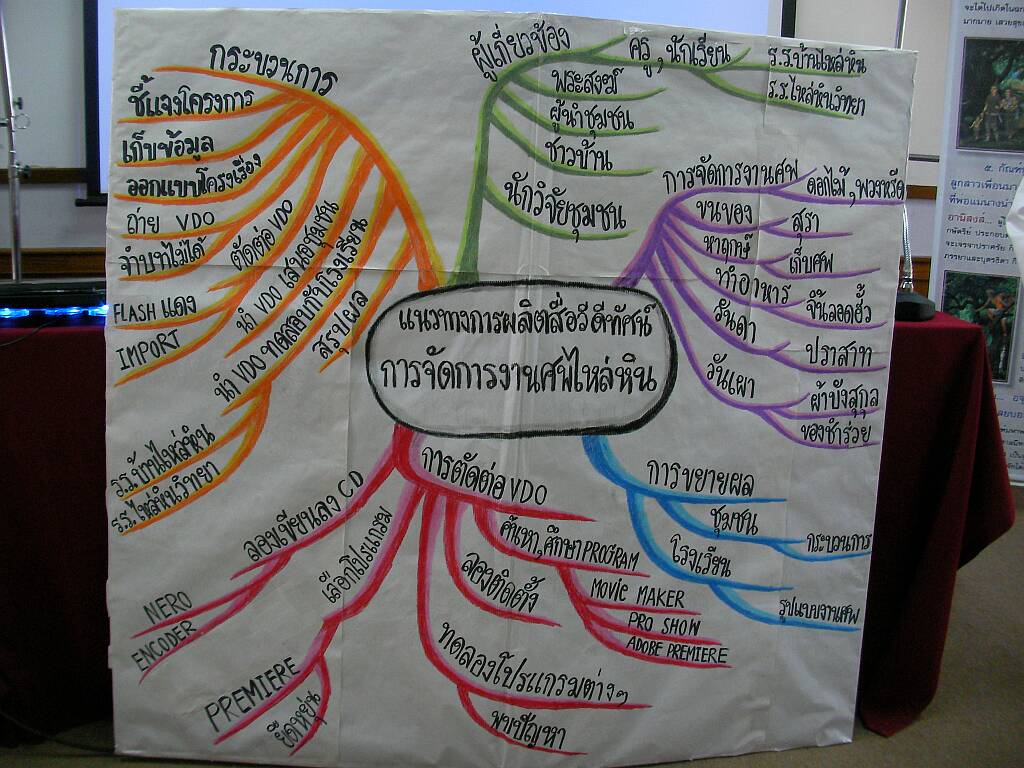 แนวทางการผลิตสื่อวีดีทัศน์
การจัดการงานศพไหล่หิน
กระบวนการ
ชี้แจงโครงการ
เก็บข้อมูล
ออกแบบโครงเรื่อง
ถ่าย VDO
จำบทไม่ได้
FLASH แดง
IMPORT
ตัดต่อ VDO
นำ VDO เสนอชุมชน
นำ VDO ทดสอบกับโรงเรียน
ร.ร.บ้านไหล่หิน
ร.ร.ไหล่หินวิทยา
สรุปผล
ผู้เกี่ยวข้อง
ครู, นักเรียน
ร.ร.บ้านไหล่หิน
ร.ร.ไหล่หินวิทยา
พระสงฆ์
ผู้นำชุมชน
ชาวบ้าน
นักวิจัยชุมชน
การจัดการงานศพ
ดอกไม้, พวงหรีด
ขนของ
สุรา
หาฤกษ์
เก็บศพ
ทำอาหาร
จิ๊นลอดฮั้ว
วันดา
ปราสาท
วันเผา
ผ้าบังสุกุล
ของชำร่วย
การตัดต่อ VDO
ค้นหา, ศึกษา PROGRAM
MOVIE MAKER
PRO SHOW
ADOBE PREMIERE
ลองติดตั้ง
ทดลองโปรแกรมต่างๆ
พบปัญหา
เลือกโปรแกรม
PREMIERE
ยืดหยุ่น
ลองเขียนลง CD
NERO
ENCODER
การขยายผล
ชุมชน
กระบวนการ
โรงเรียน
รูปแบบงานศพ